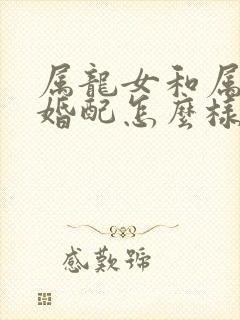 属龍女和属
婚配怎麼樣
感歎號